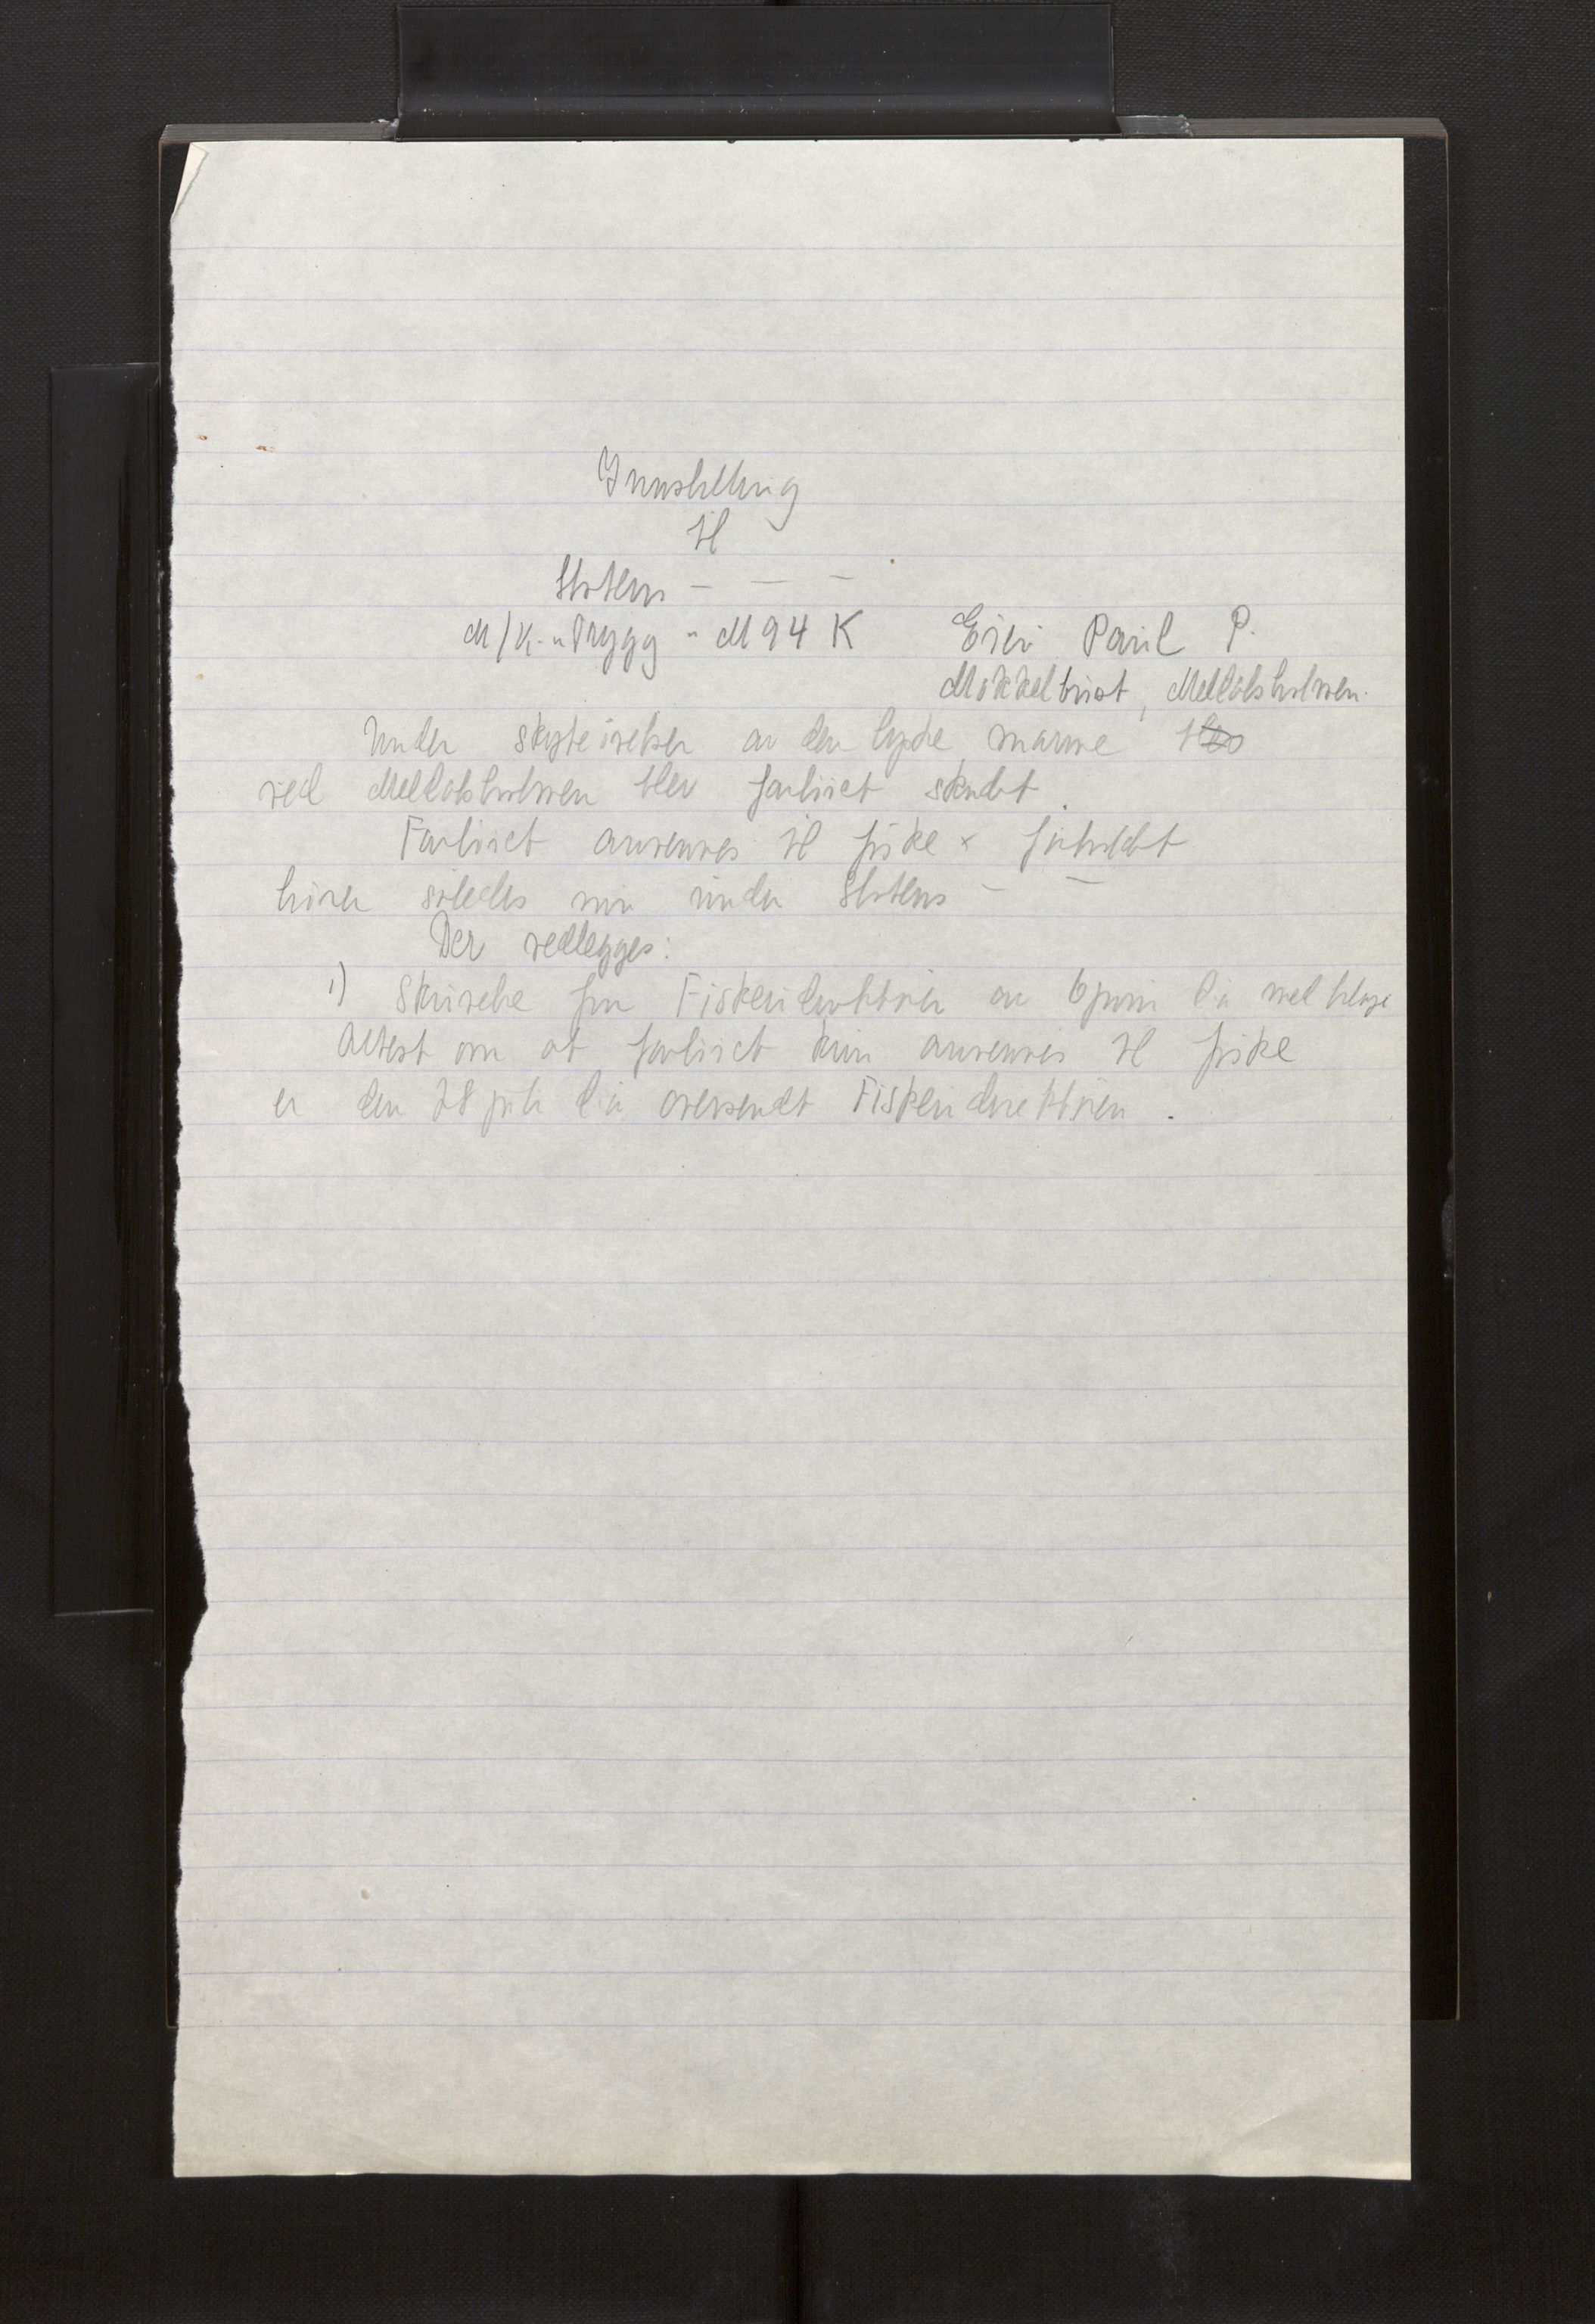 Innstilling
til
Statens — — —
M/K. "Trygg" M 94 K Eier Paul P.
Mökkelbust, Mellabshavnen.
Under skyteövelser av den tyske marine ble
ved Mellabshavnen blev fartöiet skadet.
Fartöiet anvendes til fiske
hörer således inn under Statens — —
Der vedlegges:
1) Skrivelse fra Fiskeridirektören av 6 juni d.å. med bilag
Attest om at fartöiet kun anvendes til fiske
er den 28 juli d.å. oversendt Fiskeridirektören.